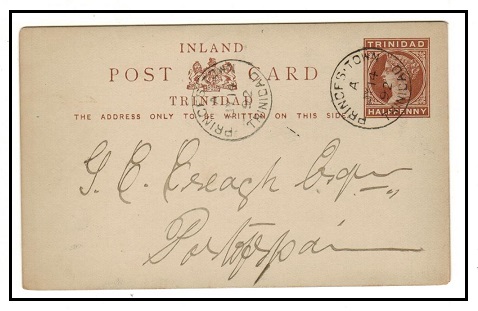 INLAND
POST CARD
TRINIDAD
THE ADDRESS ONLY TO BE WRITTEN ON THIS SIDE
TRINIDAD
HALFPENNY
PRINCES-TOWN TRINIDAD
A
PRINCES-TOWN TRINIDAD
A
G. E. Creagh Esqre
Port of Spain